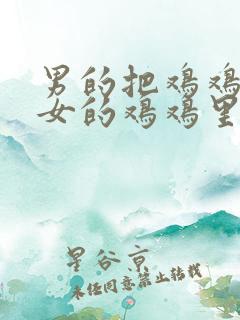 男的把鸡鸡
女的鸡鸡里
星谷京
未经同意禁止转载